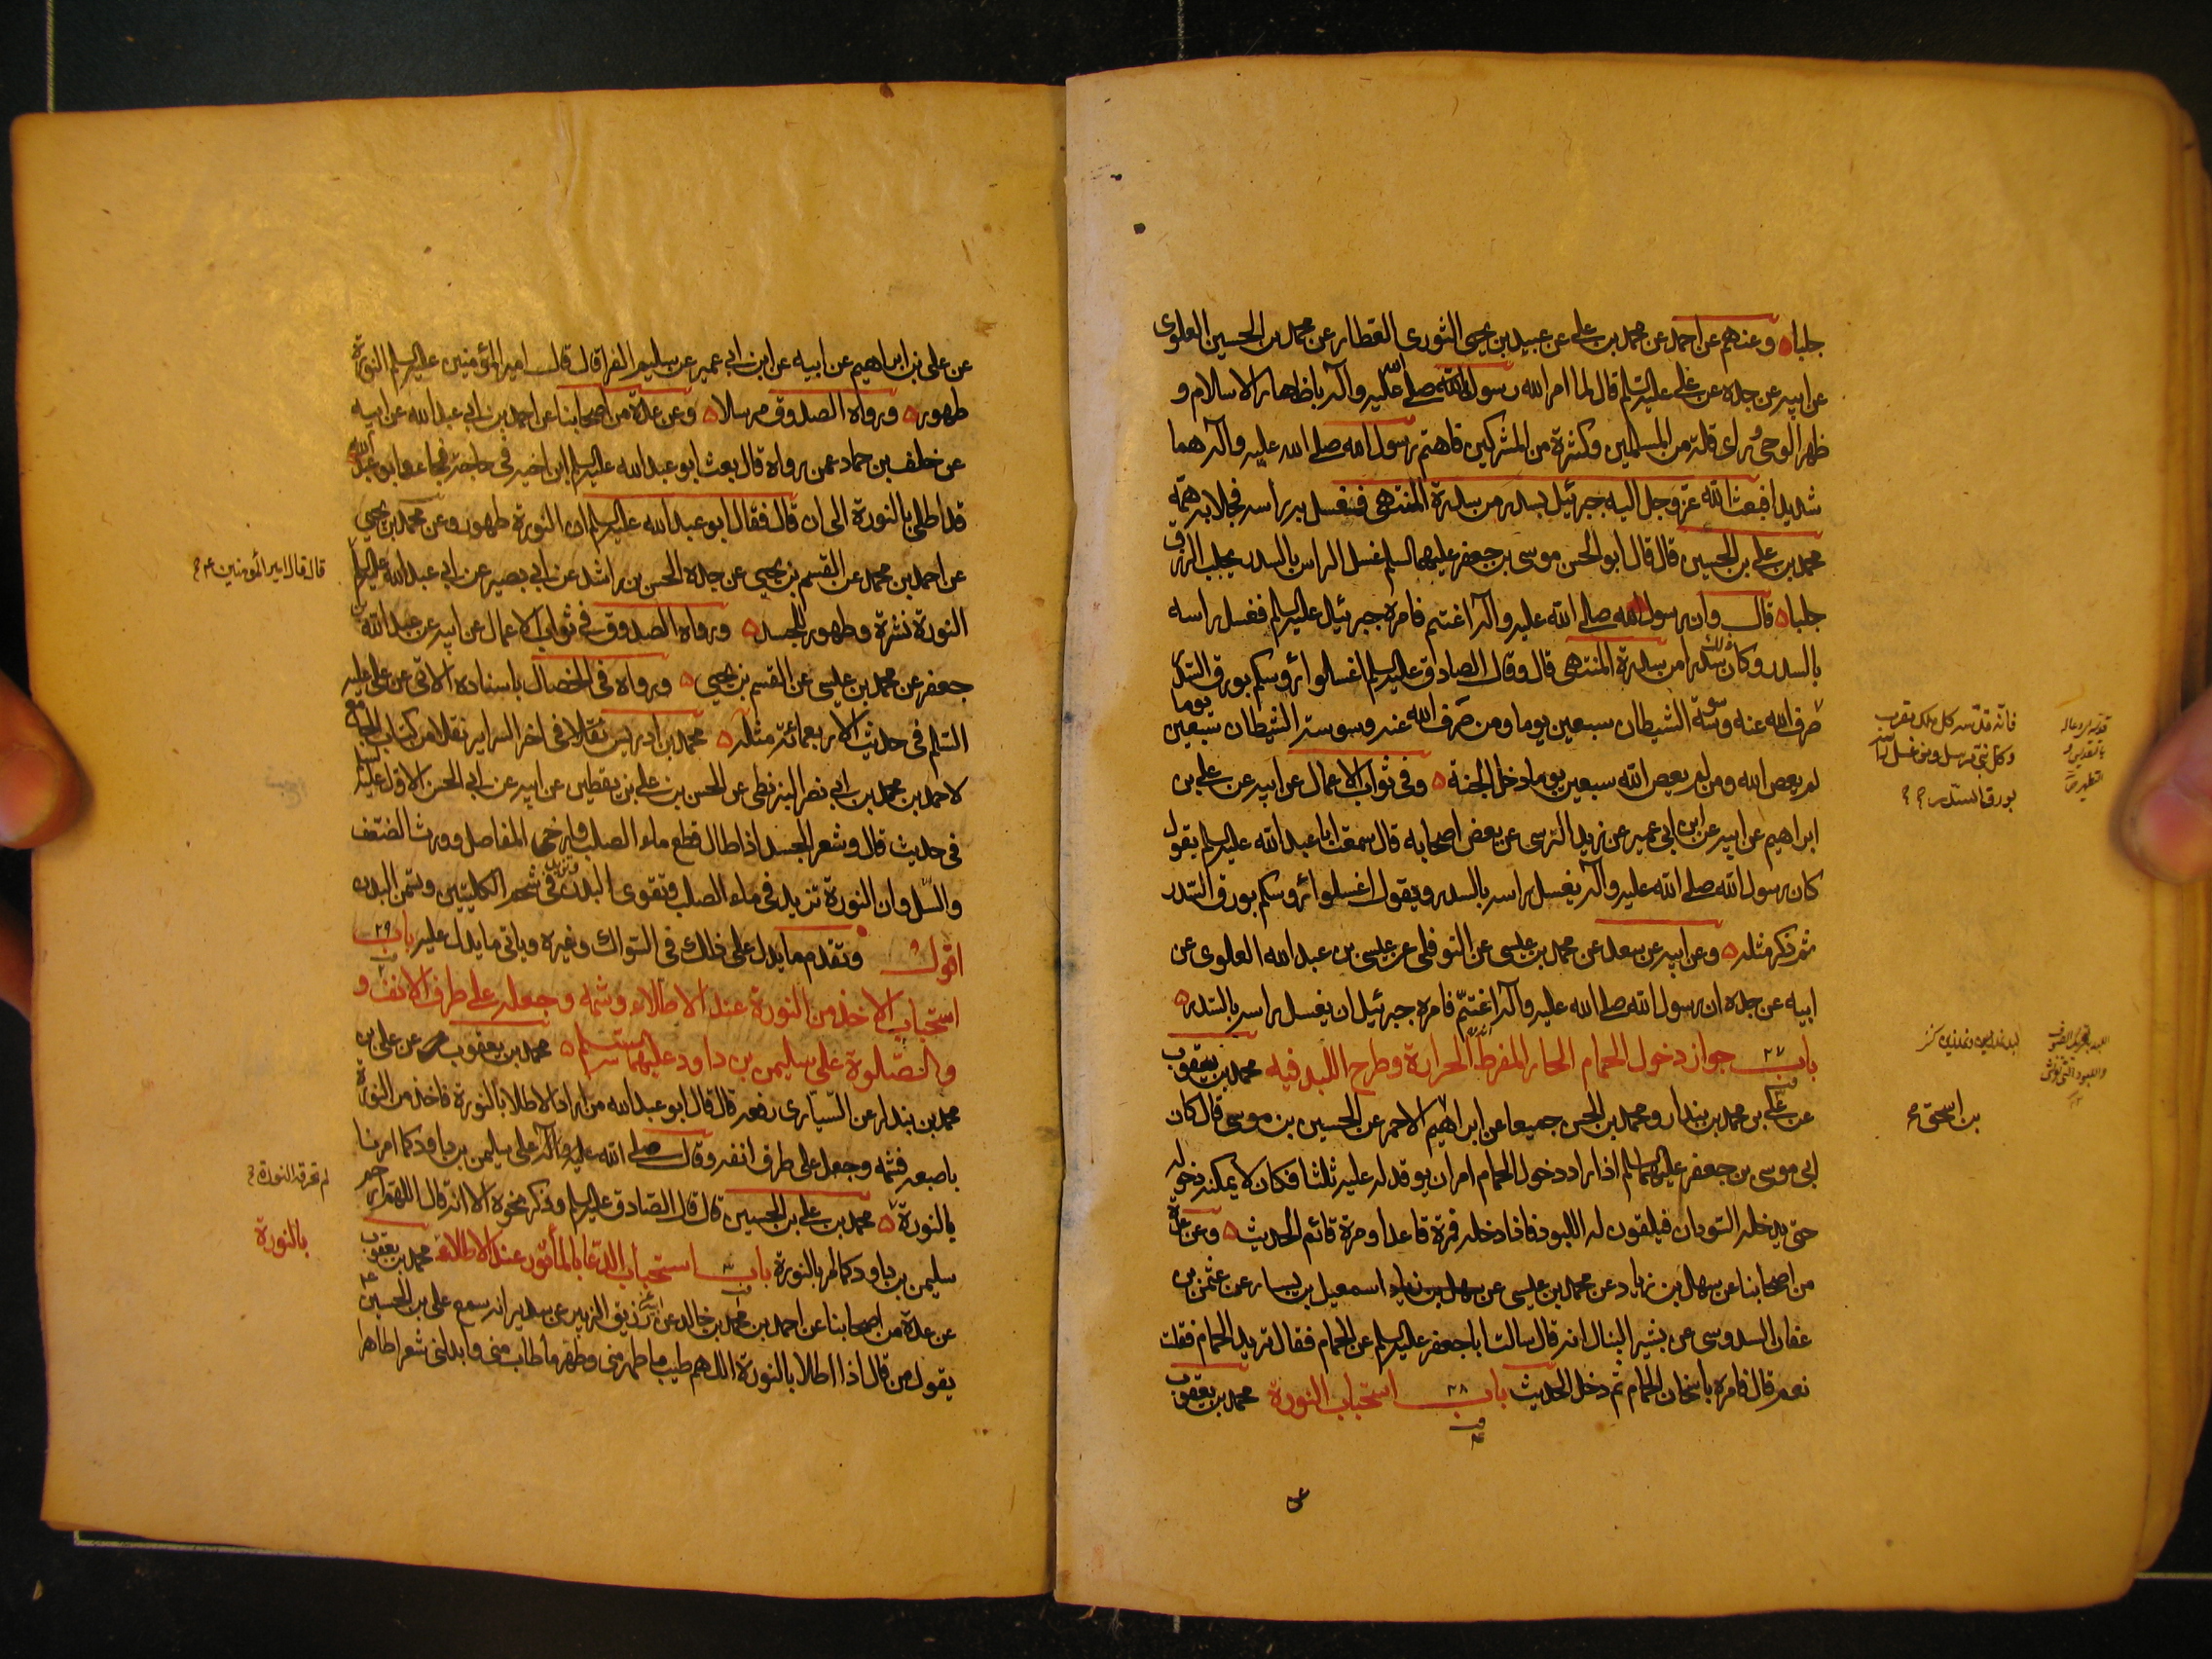 جلبا ه وعنهم عن احمد عن محمد بن علي عن عبيد بن يحيى الثوري العطار عن محمد بن الحسين العلوي
عن ابيه عن جده عن علي عليه السلم قال لما امر الله رسول الله صلى الله عليه واله باظهار الاسلام و
ظهر الوحي راى قلة من المسلمين وكثرة من المشركين فاهتم رسول الله صلى الله عليه واله هما
شديدا فبعث الله عز وجل اليه جبرئيل بسدر من سدرة المنتهى فغسل به راسه فجلا به همه
محمد بن علي بن الحسين قال قال ابو الحسن موسى بن جعفر عليهما السلم غسل الراس بالسدر يجلب الرزق
جلبا ه قال وان رسول الله صلى الله عليه واله اغتم فامره جبرئيل عليه السلم فغسل راسه
بالسدر وكان ذلك سدرا من سدرة المنتهى قال وقال الصادق عليه السلم اغسلوا رؤسكم بورق السدر
صرف الله عنه وسوسة الشيطان سبعين يوما ومن صرف الله عنه وسوسة الشيطان سبعين يوما
لم يعص الله ومن لم يعص الله سبعين يوما دخل الجنة ه وفي ثواب الاعمال عن ابيه عن علي بن
ابراهيم عن ابيه عن ابن ابي عمير عن زيد النرسي عن بعض اصحابه قال سمعت ابا عبد الله عليه السلم يقول
كان رسول الله صلى الله عليه واله يغسل راسه بالسدر ويقول اغسلوا رؤسكم بورق السدر
ثم ذكر مثله ه وعن ابيه عن سعد عن محمد بن عيسى عن النوفلي عن عيسى بن عبد الله العلوي عن
ابيه عن جده ان رسول الله صلى الله عليه واله اغتم فامره جبرئيل ان يغسل راسه بالسدر ه
باب ٢٧ جواز دخول الحمام الحار المفرط الحرارة وطرح اللبد فيه محمد بن يعقوب
عن علي بن محمد بن بندار ومحمد بن الحسن جميعا عن ابراهيم الاحمر عن الحسين بن موسى قال كان
ابي موسى بن جعفر عليهما السلم اذا اراد دخول الحمام امر ان يوقد له عليه ثلثا فكان لا يمكنه دخوله
حتى يدخله السودان فيلقون له اللبود فاذا دخله فمرة قاعدا ومرة قائم الحديث ه وعن عدة
من اصحابنا عن سهل بن زياد عن محمد بن عيسى عن سهل بن زياد اسمعيل بن يسار عن عثمن بن
عفان السدوسي عن بشير النبال انه قال سالت ابا جعفر عليه السلم عن الحمام فقال تريد الحمام فقلت
نعم قال فامره باسخان الحمام ثم دخل الحديث باب ٢٨ استحباب النورة محمد بن يعقوب
بورق السدر
بن اسحق
عن علي بن ابراهيم عن ابيه عن ابن ابي عمير عن سليم الفرا قال قال امير المؤمنين عليه السلم النورة
طهور ه ورواه الصدوق مرسلا ه وعن عدة من اصحابنا عن احمد بن ابي عبد الله عن ابيه
عن خلف بن حماد عمن رواه قال بعث ابو عبد الله عليه السلم ابن اخيه في حاجة فجاء وابو عبد الله
قد اطلى بالنورة الى ان قال فقال ابو عبد الله عليه السلم ان النورة طهور وعن محمد بن يحيى
عن احمد بن محمد عن القسم بن يحيى عن جده الحسن بن راشد عن ابي بصير عن ابي عبد الله عليه السلم
النورة نشرة وطهور للجسد ه ورواه الصدوق في ثواب الاعمال عن ابيه عن عبد الله بن
جعفر عن محمد بن عيسى عن القسم بن يحيى ه ورواه في الخصال باسناده الاتي عن علي عليه
السلم في حديث الاربعمائة مثله ه محمد بن ادريس نقلا في اخر السراير نقلا من كتاب الجامع
لاحمد بن محمد بن ابي نصر البزنطي عن الحسن بن علي بن يقطين عن ابيه عن ابي الحسن الاول عليه السلم
في حديث قال وشعر الجسد اذا طال قطع ماء الصلب وارخى المفاصل وورث الضعف
والسل وان النورة تزيد في ماء الصلب وتقوى البدن وتزيد في شحم الكليتين وتسمن البدن
اقول وتقدم ما يدل على ذلك في السواك وغيره وياتي ما يدل عليه باب ٢٩
استحباب الاخذ من النورة عند الاطلاء وشمه وجعله على طرف الانف و
والصلوة على سليمن بن داود عليهما السلم ه محمد بن يعقوب عن علي بن
محمد بن بندار عن السياري رفعه قال قال ابو عبد الله من اراد الاطلا بالنورة فاخذ من النورة
باصبعه فشمه وجعل على طرف انفه وقال صلى الله عليه واله على سليمن بن داود كما امرنا
بالنورة ه محمد بن علي بن الحسين قال قال الصادق عليه السلم وذكر نحوه الا انه قال اللهم ارحم
سليمن بن داود كما امر بالنورة باب استحباب الدعا بالمأثور عند الاطلاء محمد بن يعقوب
عن عدة من اصحابنا عن احمد بن محمد بن خالد عن زريق الزبير عن سدير انه سمع علي بن الحسين
يقول من قال اذا اطلا بالنورة اللهم طيب ما طهر مني وطهر ما طاب مني وابدلني شعرا طاهرا
قال قال امير المؤمنين
لم تحرقه النورة
بالنورة